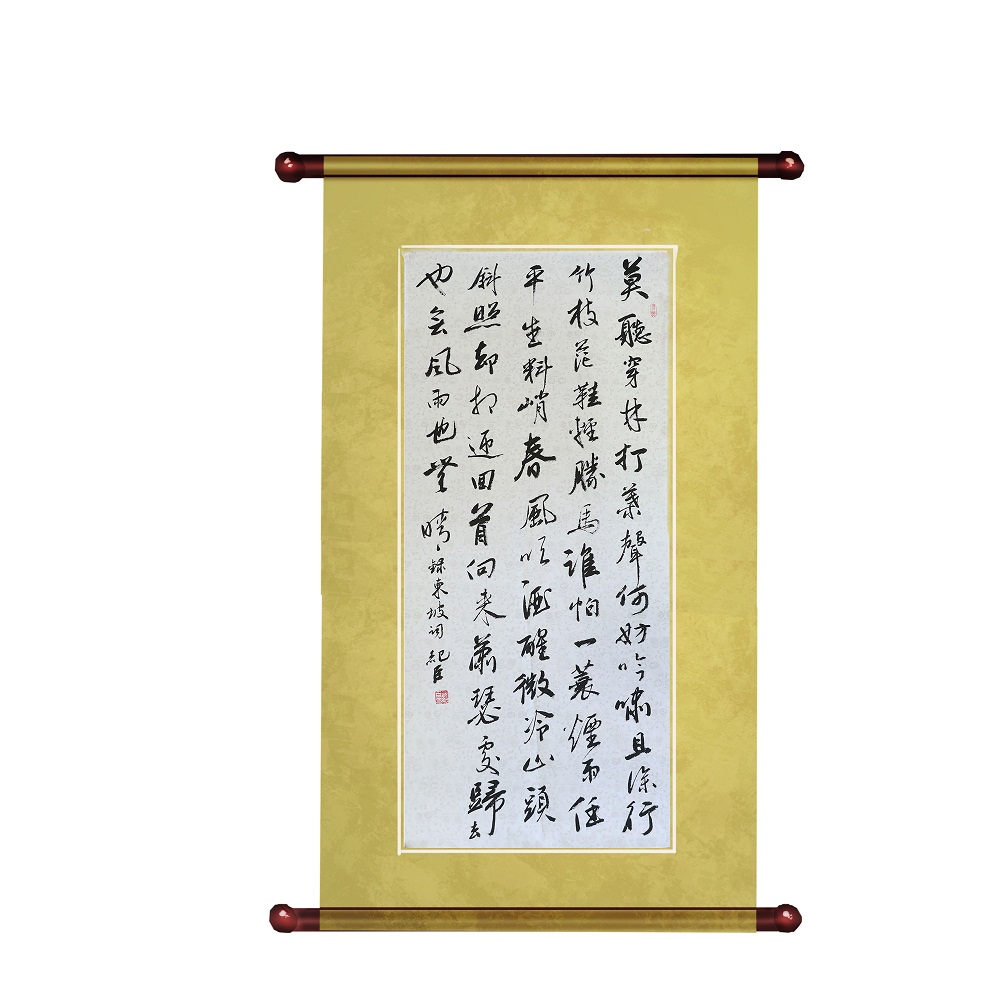 莫聽穿林打葉聲何妨吟嘯且徐行
竹枝芒鞋輕勝馬誰怕一蓑煙雨任
平生料峭春風吹酒醒微冷山頭
斜照却相迎回首向来蕭瑟處歸去
也無風雨也無晴 錄東坡詞 紀臣